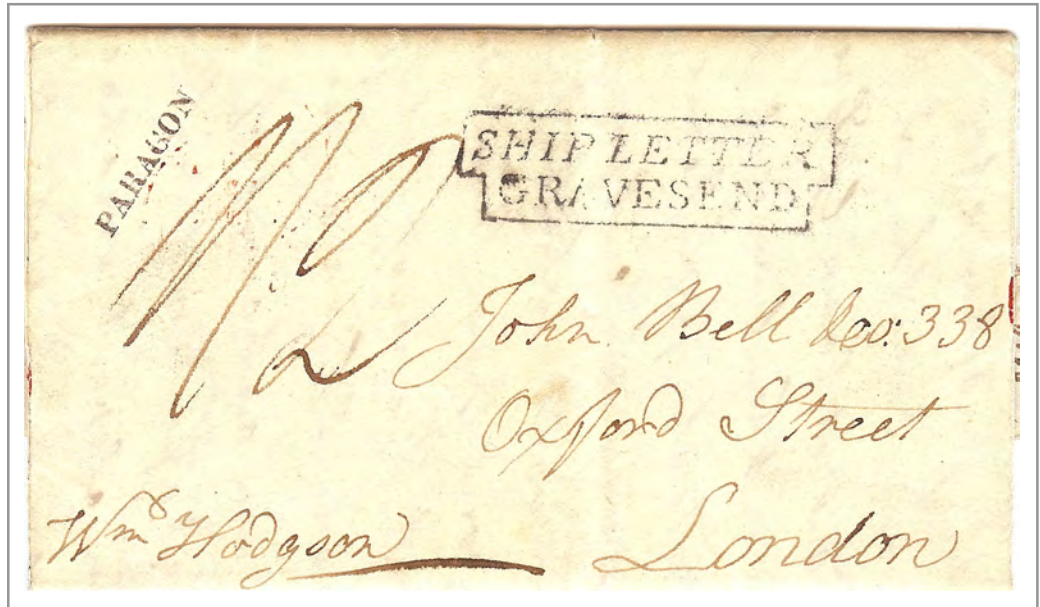 PARAGON
1/2
SHIP LETTER
GRAVESEND
John Bell No: 338
Oxford Street
London
Wm Hodgson